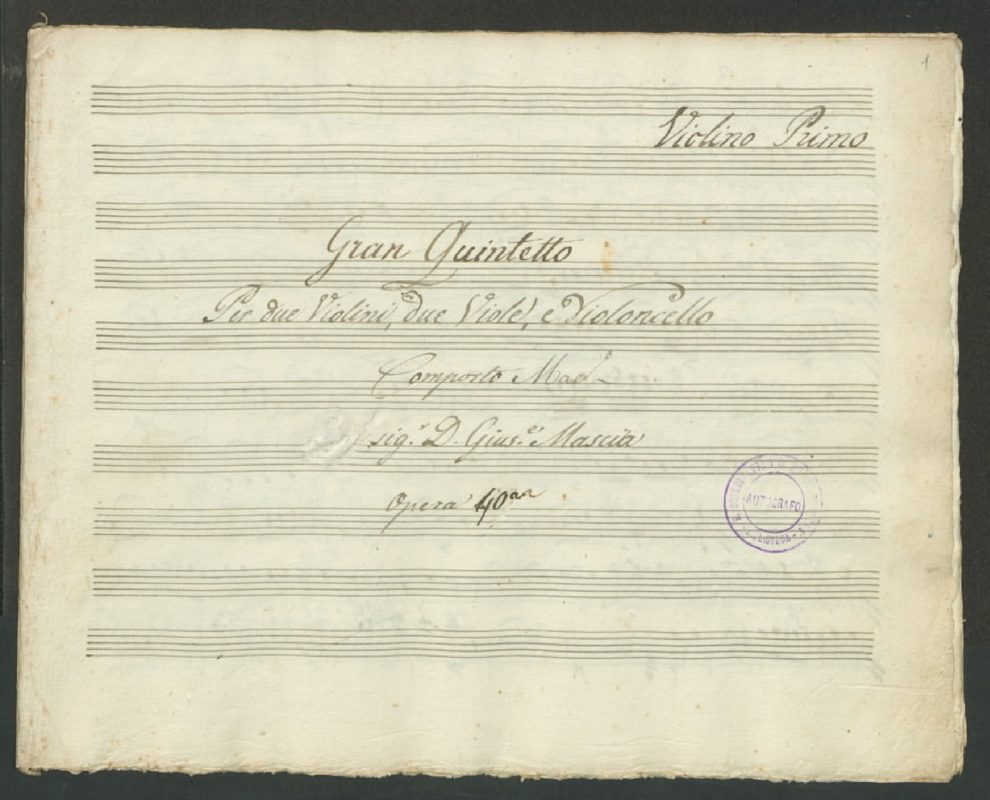 1
Violino Primo
Gran Quintetto
Per due Violini, due Viole, e Violoncello
Composto
sig.r D. Gius.e Mascia
Opera 40
AUTOGRAFO